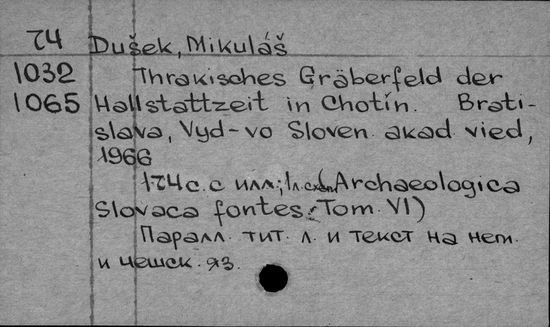 T4 Dušek, Mikuláš
1032 Thrakisches Gräberfeld der
1065 Hallstattzeit in Chotín. Brati-
slava, Vyd-vo Sloven. akad. vied,
1966
174 с. с илл; 1 л. Archaeologica
Slovaca fontes. Tom. VI)
Паралл. тит. л. и текст на нем.
и чешск. яз.